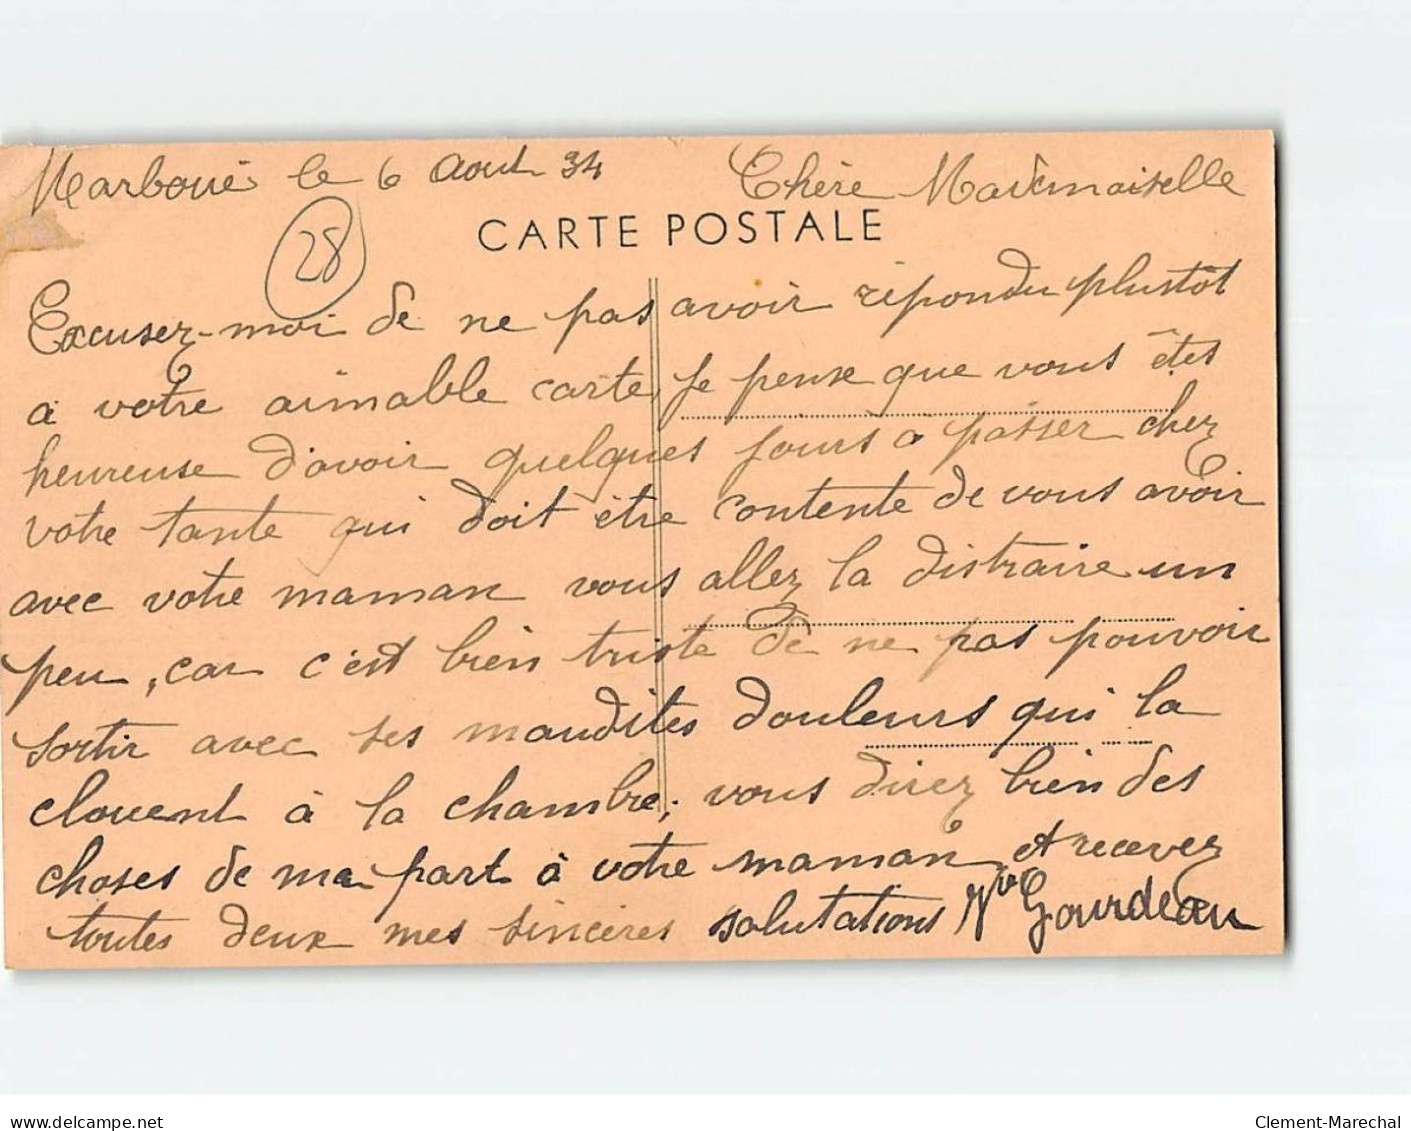 Marboué le 6 Aout 34 Chère Mademoiselle
28
CARTE POSTALE
Excusez-moi de ne pas avoir répondu plustôt
a votre aimable carte, je pense que vous êtes
heureuse d'avoir quelques jours à passer chez
votre tante qui doit être contente de vous avoir
avec votre maman vous allez la distraire un
peu, car c'est bien triste de ne pas pouvoir
sortir avec ses maudites douleurs qui la
clouent à la chambre, vous direz bien des
choses de ma part à votre maman et recevez
toutes deux mes sincères salutations Vve Gourdeau
www.delcampe.net
Clement-Marechal